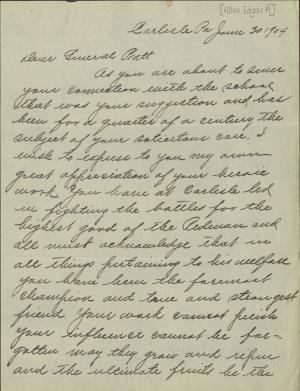 [Allen, Edgar A]
Carlisle Pa June 30 1904
Dear General Pratt
As you are about to sever
your connection with the school
that was your suggestion and has
been for a quarter of a century the
subject of your solicitous care, I
wish to express to you my own
great appreciation of your heroic
work. You have at Carlisle led
in fighting the battles for the
highest good of the Redman and
all must acknowledge that in
all things pertaining to his welfare
you have been the foremost
champion and true and strongest
friend. Your work cannot perish
your influence cannot be for-
gotten may they grow and ripen
and the ultimate fruits be the